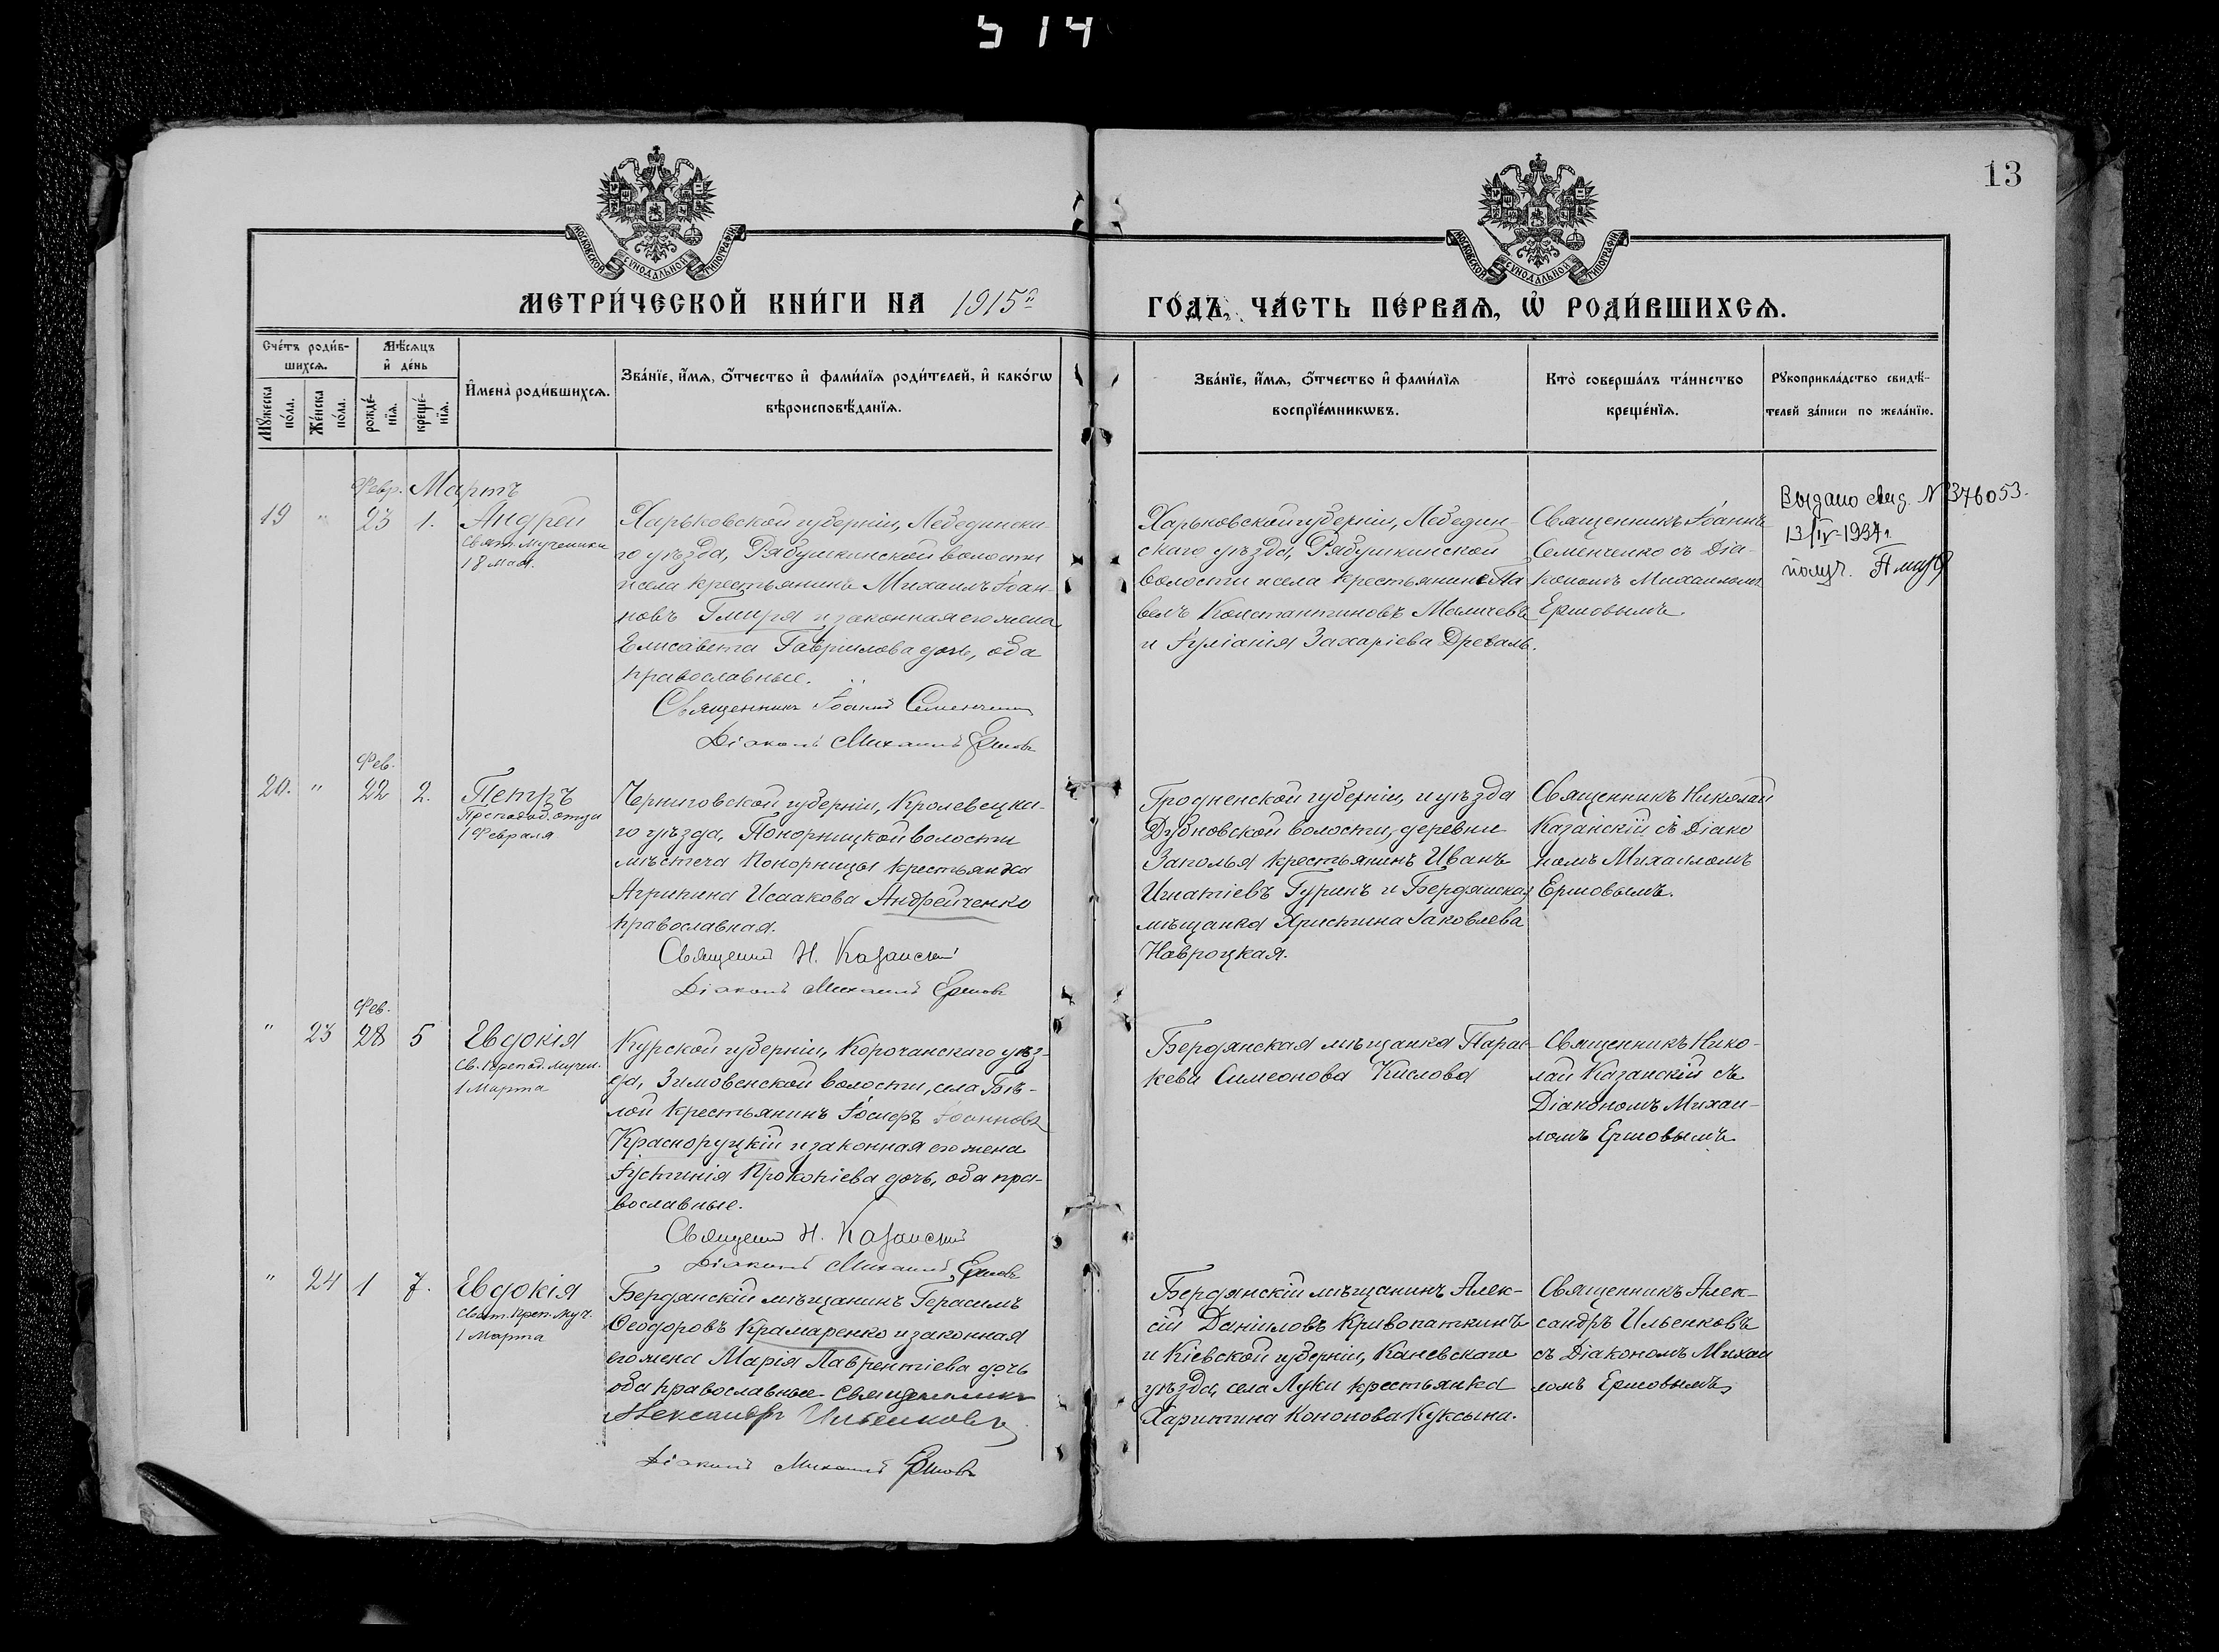 514
13
МОСКОВСКОЙ СѴНОДАЛЬНОЙ ТИПОГРАФІИ
МОСКОВСКОЙ СѴНОДАЛЬНОЙ ТИПОГРАФІИ
МЕТРИ́ЧЕСКОЙ КНИ́ГИ НА 1915й
ГО́ДЪ, ЧА́СТЬ ПЕ́РВАѦ, Ѡ҆ РОДИ́ВШИХСѦ.
Сче́тъ роди́в-
шихсѧ.
Мѣ́сѧцъ
и҆ де́нь
Мꙋ́жеска
по́ла.
Же́нска
по́ла.
рожде́-
нїѧ.
креще́-
нїѧ.
И҆мена̀ роди́вшихсѧ.
Зва́нїе, и҆́мѧ, ѻ҆́тчество и҆ фами́лїѧ роди́телей, и҆ како́гѡ
вѣроисповѣ́данїѧ.
Зва́нїе, и҆́мѧ, ѻ҆́тчество и҆ фами́лїѧ
воспрїе́мникѡвъ.
Кто̀ соверша́лъ та́инство
креще́нїѧ.
Рꙋкоприкла́дство свидѣ́-
телей за́писи по жела́нїю.
Февр. Мартъ
19 " 23 1. Андрей
Свят. Мученика
18 мая.
Харьковской губерніи, Лебединска-
го уѣзда, Рябушкинской волости
и села крестьянинъ Михаилъ Іоан-
новъ Гмиря и законная его жена
Елисавета Гавріилова дочь, оба
православные.
Священникъ Іоаннъ Семенченко
Діаконъ Михаилъ Ершовъ
Харьковской губерніи, Лебедин-
скаго уѣзда, Рябушкинской
волости и села крестьянинъ Па-
велъ Константиновъ Маличевъ
и Іуліанія Захаріева Древаль.
Священникъ Іоаннъ
Семенченко съ Діа-
кономъ Михаиломъ
Ершовымъ.
Выдано свид. №376053.
13/IV-1937г
получ.
Фев.
20. " 22 2. Петръ
Преподоб. отца
1 Февраля
Черниговской губерніи, Кролевецка-
го уѣзда, Понорницкой волости
мѣстеча Понорницы крестьянка
Агрипина Исаакова Андрейченко
православная.
Священникъ Н. Казанскій
Діаконъ Михаилъ Ершовъ
Гродненской губерніи, и уѣзда
Дубновской волости, деревни
Заполья крестьянинъ Иванъ
Игнатіевъ Гуринъ и Бердянская
мѣщанка Христина Іаковлева
Навроцкая.
Священникъ Николай
Казанскій съ Діако
номъ Михаиломъ
Ершовымъ.
Фев.
" 23 28 5 Евдокія
Св. Препод. Мучен.
1 Марта
Курской губерніи, Корочанскаго уѣз-
да, Зимовенской волости, села Бѣ-
лой крестьянинъ Іосифъ Іоанновъ
Красноруцкій и законная его жена
Іустинія Прокопіева дочь, оба пра-
вославные.
Священникъ Н. Казанскій
Діаконъ Михаилъ Ершовъ
Бердянская мѣщанка Парас-
кева Симеонова Кислова
Священникъ Нико-
лай Казанскій съ
Діакономъ Михаи-
ломъ Ершовымъ.
" 24 1 7. Евдокія
Свят. Преп. Муч.
1 Марта
Бердянскій мѣщанинъ Герасимъ
Ѳеодоровъ Крамаренко и законная
его жена Марія Лаврентіева дочь
оба православные. Священникъ
Александръ Ильенковъ
Діаконъ Михаилъ Ершовъ
Бердянскій мѣщанинъ Алек-
сій Даніиловъ Кривопаткинъ
и Кіевской губерніи, Каневскаго
уѣзда, села Луки крестьянка
Харитина Кононова Куксына.
Священникъ Алек-
сандръ Ильенковъ
съ Діакономъ Михаи
ломъ Ершовымъ